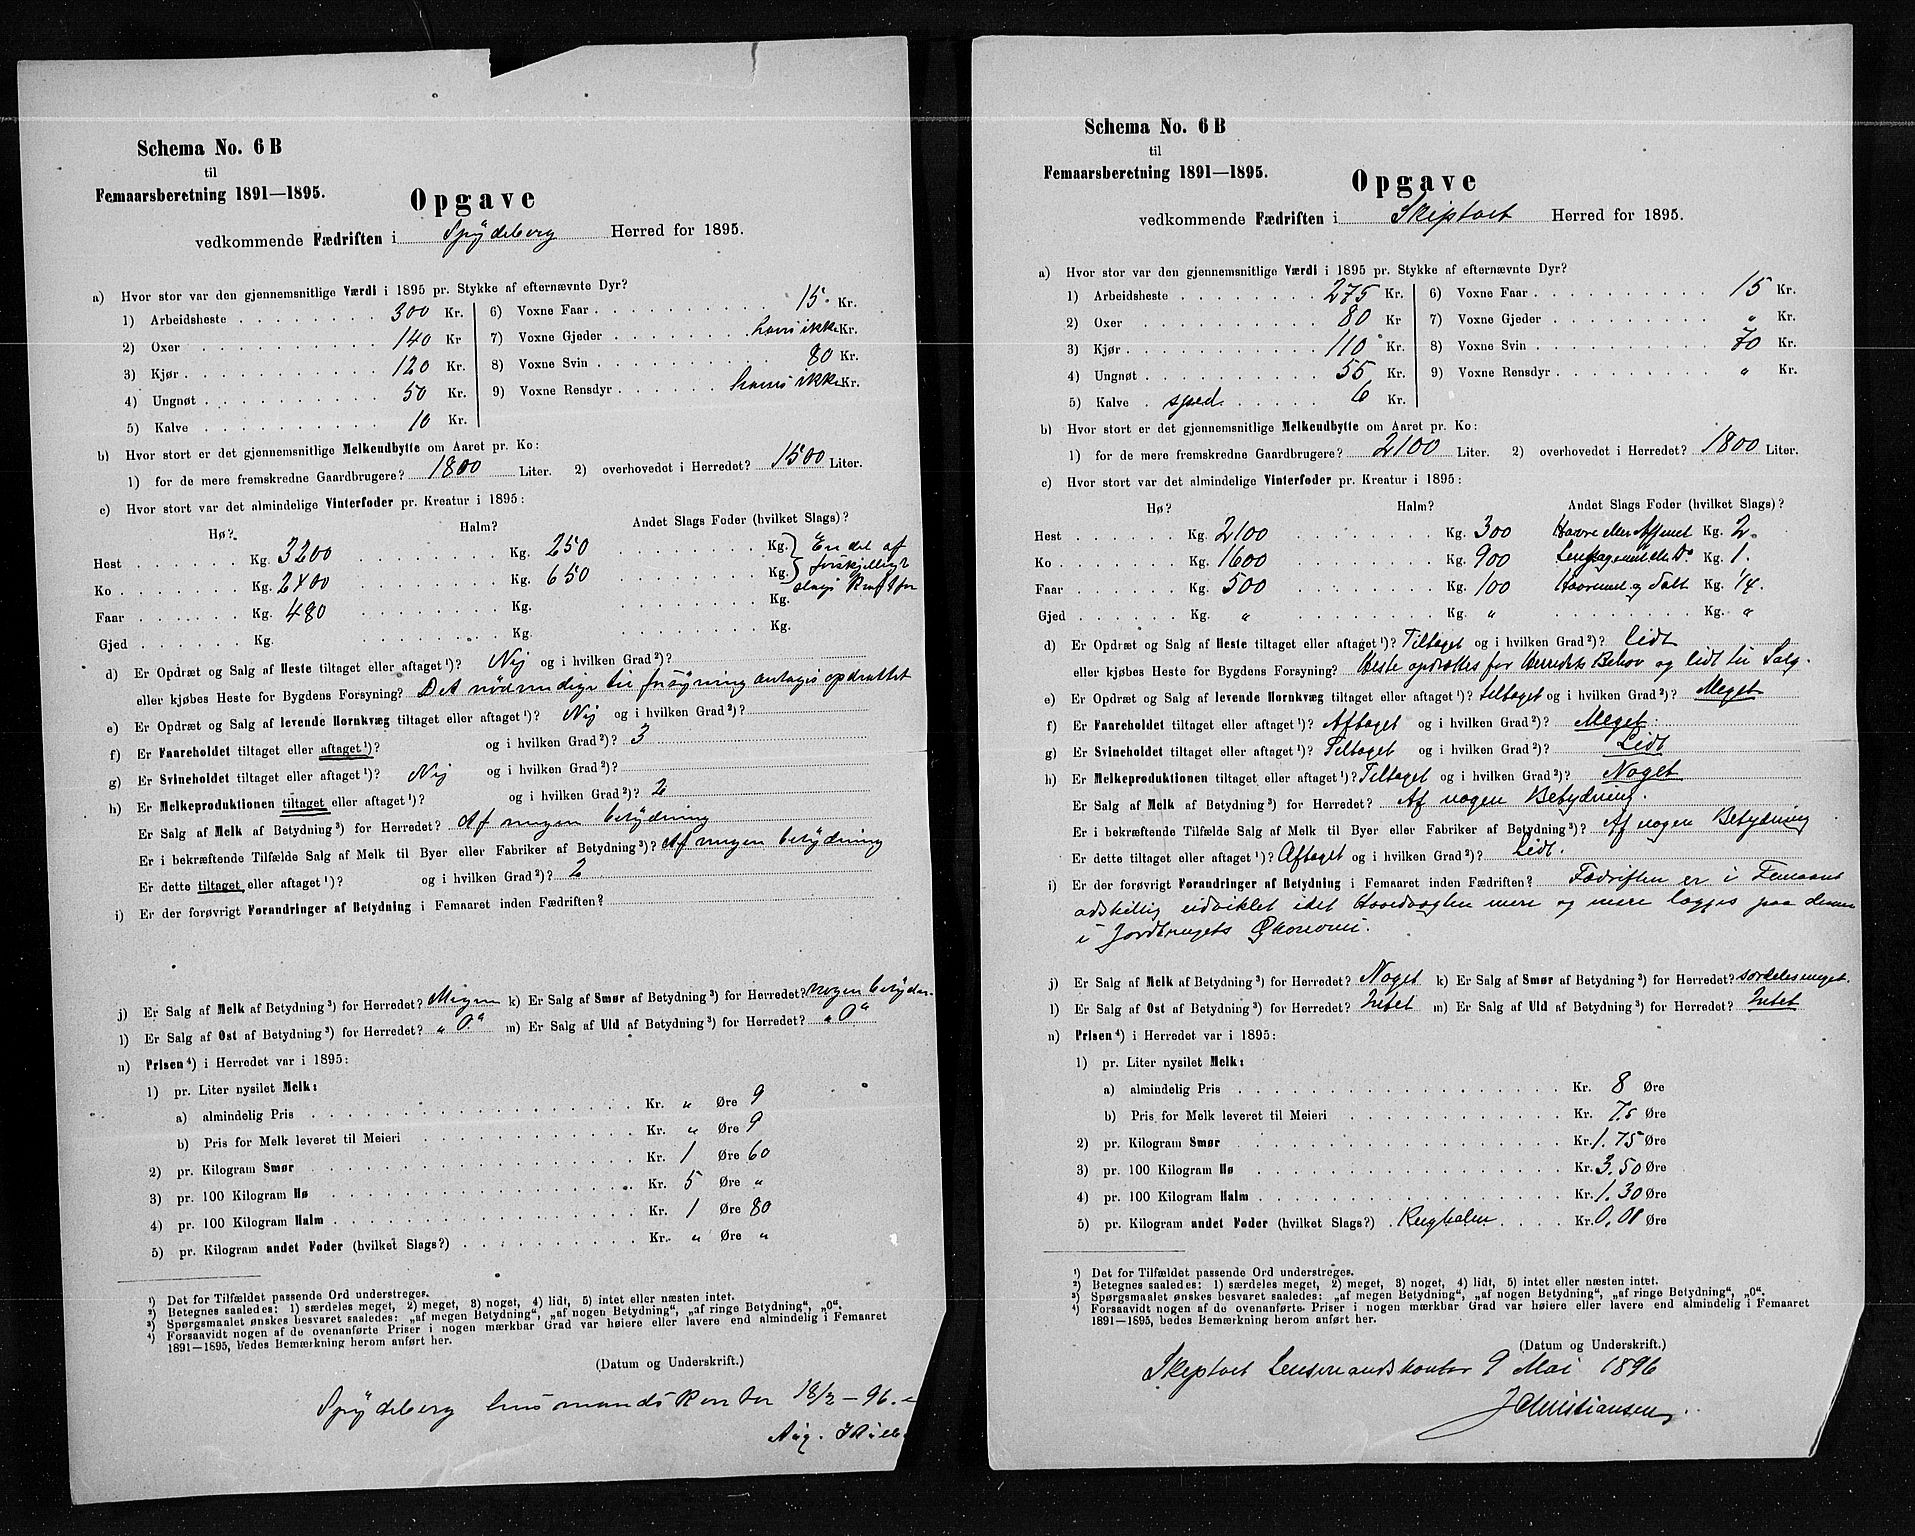 Schema No. 6 B
til
Femaarsberetning 1891—1895.
Opgave
vedkommende Fædriften i Spydeberg Herred for 1895.
a) Hvor stor var den gjennemsnitlige Værdi i 1895 pr. Stykke af efternævnte Dyr?
1) Arbeidsheste 300 Kr. 6) Voxne Faar 15 Kr.
2) Oxer 140 Kr 7) Voxne Gjeder haves ikke Kr.
3) Kjør 120 Kr. 8) Voxne Svin 80 Kr.
4) Ungnøt 50 Kr. 9) Voxne Rensdyr haves ikke Kr.
5) Kalve 10 Kr.
b) Hvor stort er det gjennemsnitlige Melkeudbytte om Aaret pr. Ko:
1) for de mere fremskredne Gaardbrugere? 1800 Liter. 2) overhovedet i Herredet? 1500 Liter.
c) Hvor stort var det almindelige Vinterfoder pr. Kreatur i 1895:
Hø? Halm? Andet Slags Foder (hvilket Slags)?
Hest Kg. 3200 Kg. 250 Kg. En del af
Ko Kg. 2400 Kg. 650 Kg. forskjelligt
Faar Kg. 480 Kg. Kg. slags Kraftfor
Gjed Kg. Kg. Kg.
d) Er Opdræt og Salg af Heste tiltaget eller aftaget¹)? Nej og i hvilken Grad²)?
eller kjøbes Heste for Bygdens Forsyning? Det nødvendige til forsyning antages opdrættet
e) Er Opdræt og Salg af levende Hornkvæg tiltaget eller aftaget¹)? Nej og i hvilken Grad²)?
f) Er Faareholdet tiltaget eller aftaget¹)? og i hvilken Grad²)? 3
g) Er Svineholdet tiltaget eller aftaget¹)? Nej og i hvilken Grad²)?
h) Er Melkeproduktionen tiltaget eller aftaget¹)? og i hvilken Grad²)? 2
Er Salg af Melk af Betydning³) for Herredet? Af megen betydning
Er i bekræftende Tilfælde Salg af Melk til Byer eller Fabriker af Betydning³)? Af megen betydning
Er dette tiltaget eller aftaget¹)? og i hvilken Grad²)? 2
i) Er der forøvrigt Forandringer af Betydning i Femaaret inden Fædriften?
j) Er Salg af Melk af Betydning³) for Herredet? Megen k) Er Salg af Smør af Betydning³) for Herredet? nogen betydn.
l) Er Salg af Ost af Betydning³) for Herredet? „ 0 “ m) Er Salg af Uld af Betydning³) for Herredet? „ 0 “
n) Prisen⁴) i Herredet var i 1895:
1) pr. Liter nysilet Melk:
a) almindelig Pris Kr. „ Øre 9
b) Pris for Melk leveret til Meieri Kr. „ Øre 9
2) pr. Kilogram Smør Kr. 1 Øre 60
3) pr. 100 Kilogram Hø Kr. 5 Øre „
4) pr. 100 Kilogram Halm Kr. 1 Øre 80
5) pr. Kilogram andet Foder (hvilket Slags?) Kr. „ Øre „
¹) Det for Tilfældet passende Ord understreges.
²) Betegnes saaledes: 1) særdeles meget, 2) meget, 3) noget, 4) lidt, 5) intet eller næsten intet.
³) Spørgsmaalet ønskes besvaret saaledes: „af megen Betydning“, „af nogen Betydning“, „af ringe Betydning“, „0“.
⁴) Forsaavidt nogen af de ovenanførte Priser i nogen mærkbar Grad var høiere eller lavere end almindelig i Femaaret
1891—1895, bedes Bemærkning herom anført her.
(Datum og Underskrift.)
Spydeberg lensmandskontor 18/2 – 96.
Aug.
Schema No. 6 B
til
Femaarsberetning 1891—1895.
Opgave
vedkommende Fædriften i Skiptvet Herred for 1895.
a) Hvor stor var den gjennemsnitlige Værdi i 1895 pr. Stykke af efternævnte Dyr?
1) Arbeidsheste 275 Kr. 6) Voxne Faar 15 Kr.
2) Oxer 80 Kr 7) Voxne Gjeder „ Kr.
3) Kjør 110 Kr. 8) Voxne Svin 70 Kr.
4) Ungnøt 55 Kr. 9) Voxne Rensdyr „ Kr.
5) Kalve sped 6 Kr.
b) Hvor stort er det gjennemsnitlige Melkeudbytte om Aaret pr. Ko:
1) for de mere fremskredne Gaardbrugere? 2100 Liter. 2) overhovedet i Herredet? 1800 Liter.
c) Hvor stort var det almindelige Vinterfoder pr. Kreatur i 1895:
Hø? Halm? Andet Slags Foder (hvilket Slags)?
Hest Kg. 2100 Kg. 300 Havre eller Kg. 2.
Ko Kg. 1600 Kg. 900 Kg. 1.
Faar Kg. 500 Kg. 100 Havremel og Salt Kg. 1/4.
Gjed Kg. „ Kg. „ Kg. „
d) Er Opdræt og Salg af Heste tiltaget eller aftaget¹)? Tiltaget og i hvilken Grad²)? lidt
eller kjøbes Heste for Bygdens Forsyning? Heste opdrættes for Herredets Behov og lidt til Salg.
e) Er Opdræt og Salg af levende Hornkvæg tiltaget eller aftaget¹)? tiltaget og i hvilken Grad²)? Meget
f) Er Faareholdet tiltaget eller aftaget¹)? Aftaget og i hvilken Grad²)? Meget.
g) Er Svineholdet tiltaget eller aftaget¹)? Tiltaget og i hvilken Grad²)? Lidt
h) Er Melkeproduktionen tiltaget eller aftaget¹)? Tiltaget og i hvilken Grad²)? Noget
Er Salg af Melk af Betydning³) for Herredet? Af nogen Betydning.
Er i bekræftende Tilfælde Salg af Melk til Byer eller Fabriker af Betydning³)? Af nogen Betydning
Er dette tiltaget eller aftaget¹)? Aftaget og i hvilken Grad²)? Lidt.
i) Er der forøvrigt Forandringer af Betydning i Femaaret inden Fædriften? Fædriften er i Femaaret
adskillig udviklet idet Hovedvægten mere og mere lægges paa denne
i Jordbrugets Økonomi.
j) Er Salg af Melk af Betydning³) for Herredet? Noget k) Er Salg af Smør af Betydning³) for Herredet? særdeles meget.
l) Er Salg af Ost af Betydning³) for Herredet? Intet m) Er Salg af Uld af Betydning³) for Herredet? Intet
n) Prisen⁴) i Herredet var i 1895:
1) pr. Liter nysilet Melk:
a) almindelig Pris Kr. 8 Øre
b) Pris for Melk leveret til Meieri Kr. 7.5 Øre
2) pr. Kilogram Smør Kr. 1.75 Øre
3) pr. 100 Kilogram Hø Kr. 3.50 Øre
4) pr. 100 Kilogram Halm Kr. 1.30 Øre
5) pr. Kilogram andet Foder (hvilket Slags?) Rughalm Kr. 0,01 Øre
¹) Det for Tilfældet passende Ord understreges.
²) Betegnes saaledes: 1) særdeles meget, 2) meget, 3) noget, 4) lidt, 5) intet eller næsten intet.
³) Spørgsmaalet ønskes besvaret saaledes: „af megen Betydning“, „af nogen Betydning“, „af ringe Betydning“, „0“.
⁴) Forsaavidt nogen af de ovenanførte Priser i nogen mærkbar Grad var høiere eller lavere end almindelig i Femaaret
1891—1895, bedes Bemærkning herom anført her.
(Datum og Underskrift.)
Skiptvet Lensmandskontor 9 Mai 1896
J Christiansen.